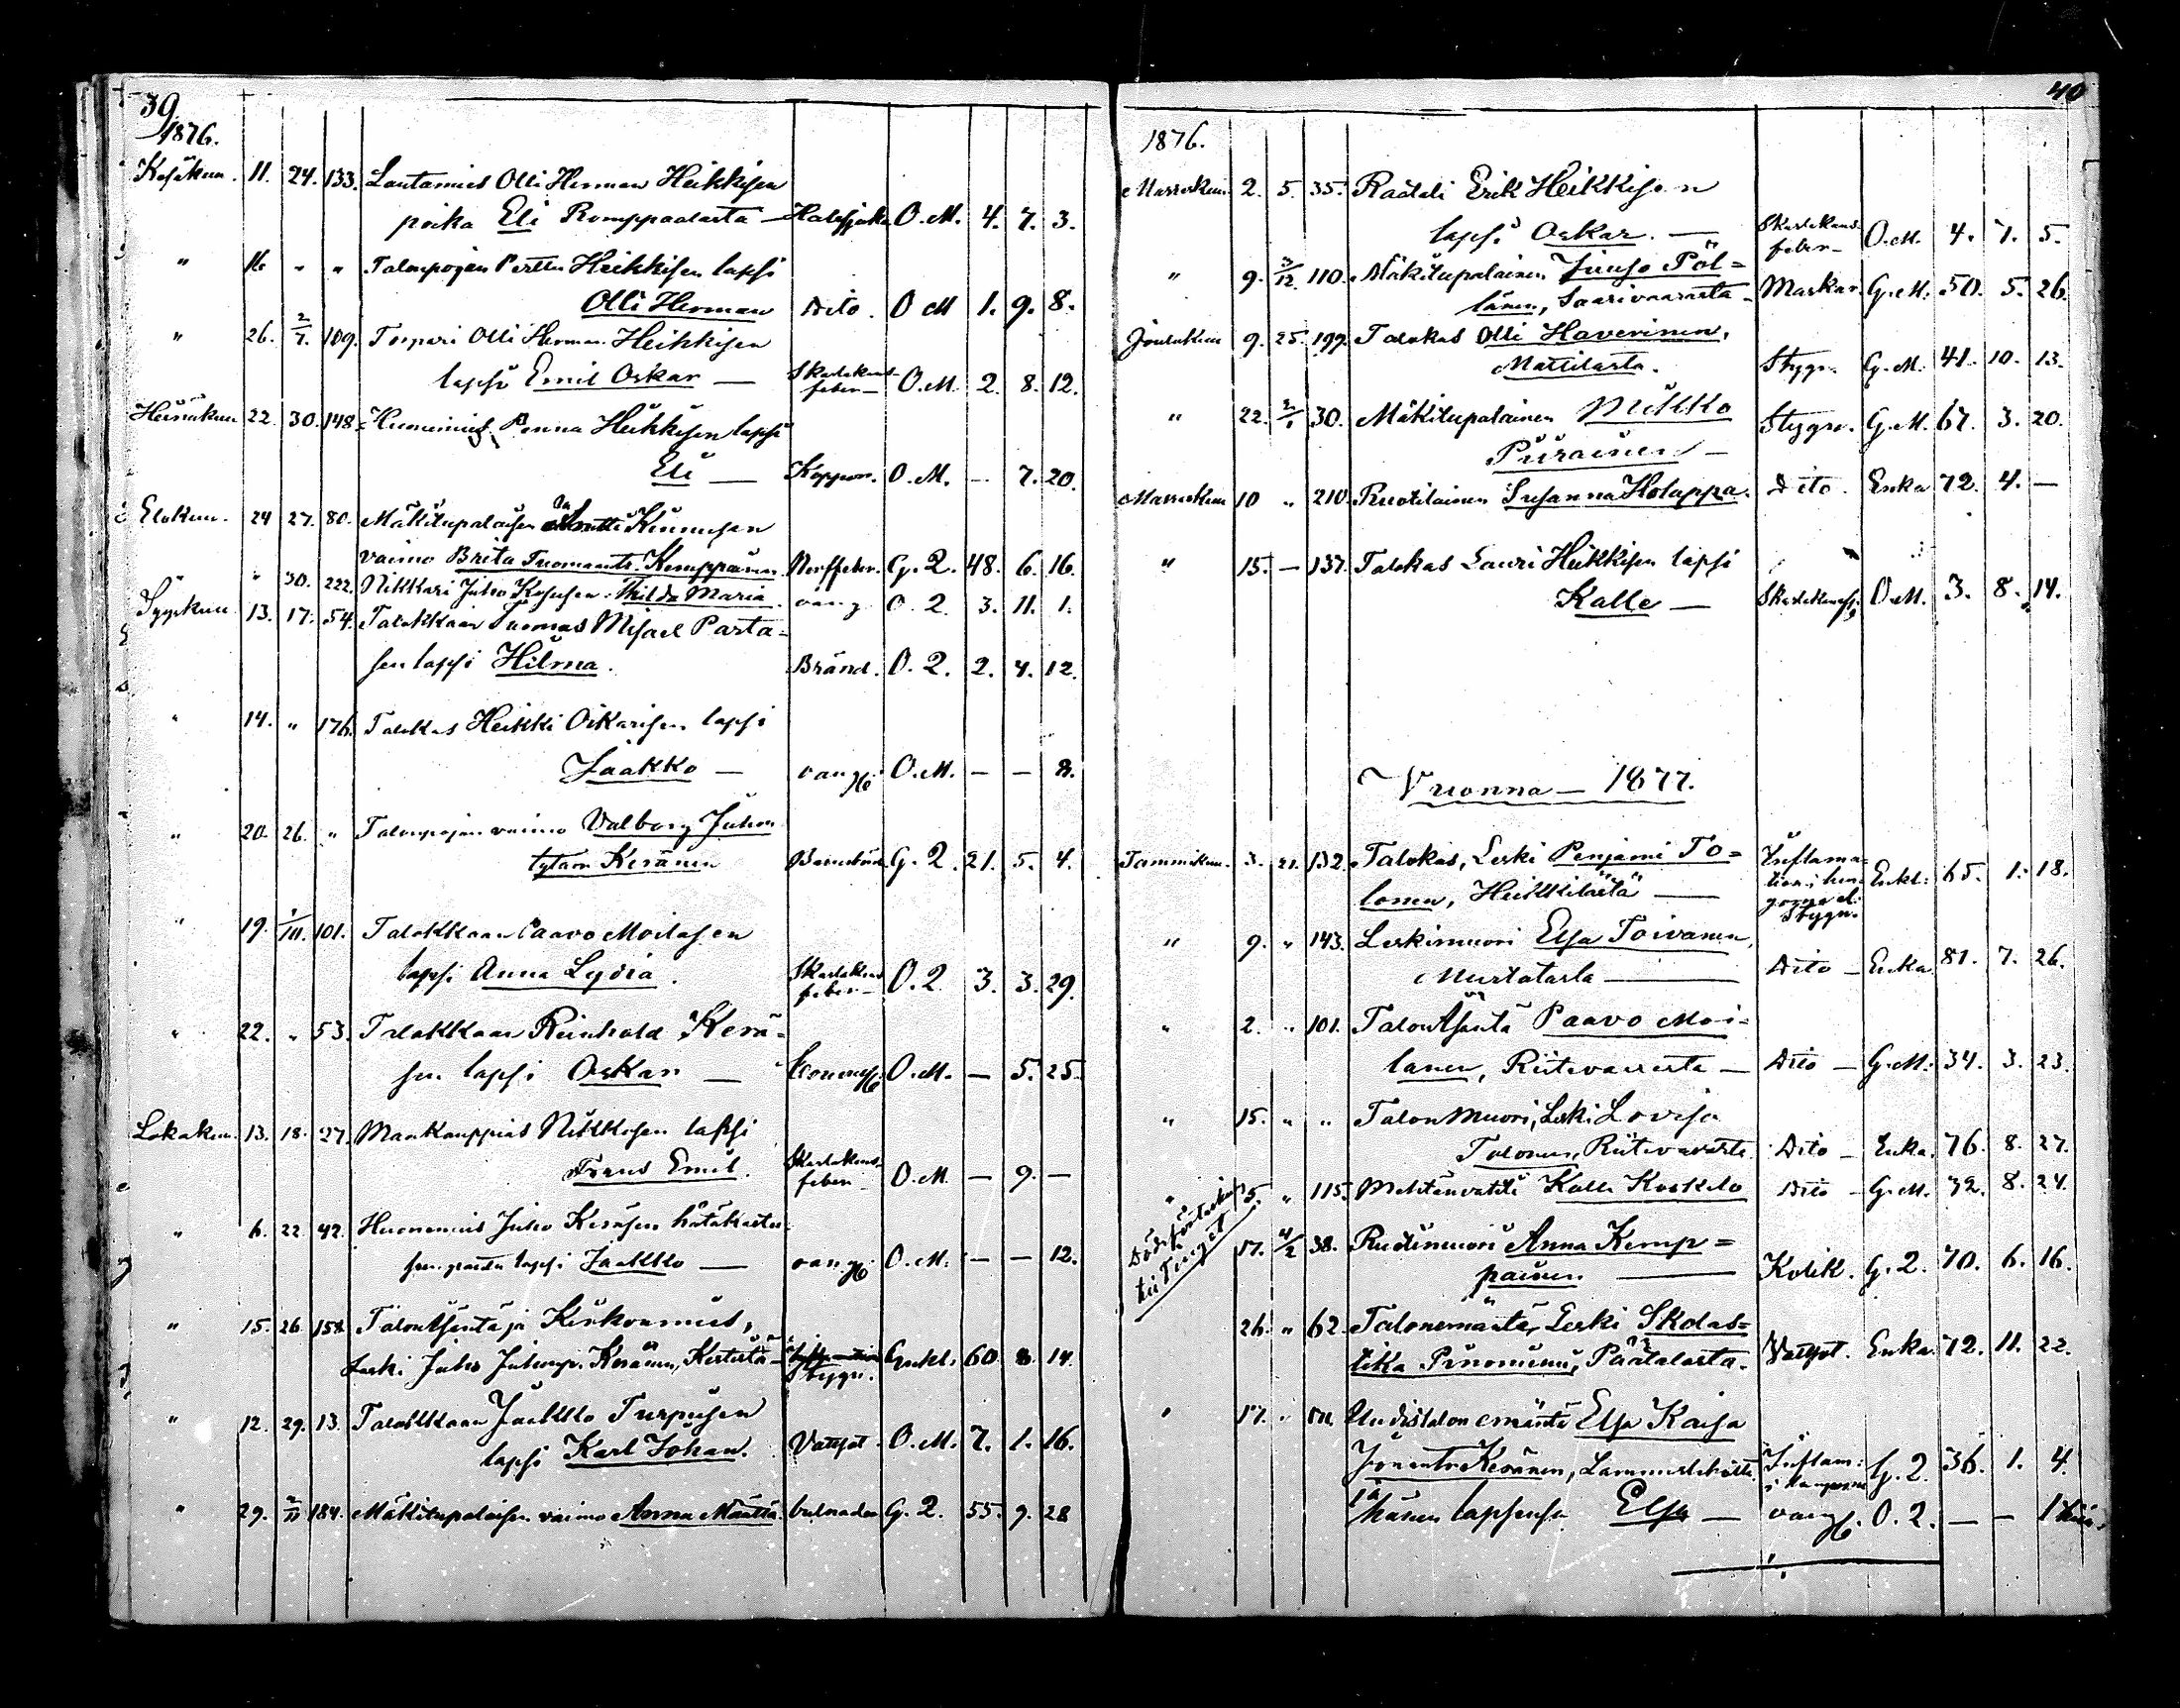 39.
1876.
Kesäkuu. 11. 24. 133. Lautamies Olli Herman Heikkisen
poika Eli Romppaalasta — Halssjuka O.M. 4. 7. 3.
" 16. " " Talonpojan Pertti Heikkisen lapsi
Olli Herman Dito. O M 1. 9. 8.
" 26. 2/7. 109. Torpari Olli Herman Heikkisen
lapsi Emil Oskar — Skarlakans-
feber — O.M. 2. 8. 12.
Heinäkuu 22. 30. 148. Huonemies Penna Heikkisen lapsi
Eli — Koppor. O.M. — 7. 20.
Elokuu. 24 27. 80. Mäkitupalaisen Antti Kinnusen
vaimo Brita Tuomaantr. Kemppainen. Nerffeber. G. 2. 48. 6. 16.
" 30. 222. Nikkari Juho Kosusen Thilda Maria. 0. 2. 3. 11. 1.
Syyskuu. 13. 17. 54. Talokkaan Tuomas Misael Parta-
sen lapsi Hilma. Bränd. O. 2. 2. 4. 12.
" 14. " 176. Talokas Heikki Oikarisen lapsi
Jaakko — O.M. — — 8.
" 20. 26. " Talonpojan vaimo Valborg Juhon
tytär Keränen Barnsbörd G. 2. 21. 5. 4.
" 19. 1/10. 101. Talokkaan Paavo Moilasen
lapsi Anna Lydia. Skarlakans
feber — O. 2. 3. 3. 29.
" 22. " 53. Talokkaan Reinhold Kerä-
sen lapsi Oskar — O.M. — 5. 25
Lokakuu. 13. 18. 27. Maakauppias Nikkosen lapsi
Frans Emil. Skarlakans-
feber — O.M. — 9. —
" 6. 22. 42. Huonemies Juho Keräsen hätäkastee-
sen lapsi Jaakko — O.M. — — 12.
" 15. 26. 158. Talon Isäntä ja Kirkonmies,
Leski Juho Juhonp. Keränen, Stygn. Enkl. 60. 8. 14.
" 12. 29. 13. Talokkaan Jaakko Turpeisen
lapsi Karl Johan. Vattsot. O.M. 7. 1. 16.
" 29. 184. Mäkitupalaisen vaimo Anna Määttä. bulnader G. 2. 55. 9. 28
40
1876.
Marraskuu. 2. 5. 35. Räätäli Erik Heikkisen
lapsi Oskar. — Skarlakans-
feber — O.M. 4. 7. 5.
" 9. 3/12. 110. Mäkitupalainen Juuso Pöl-
länen, Saarivaarasta — Maskar. G.M. 50. 5. 26.
Joulukuu 9. 25. 199. Talokas Olli Haverinen,
Mattilasta. Stygn. G.M. 41. 10. 13.
" 22. 2/1 30. Mäkitupalainen Mikko
Piirainen — Stygn. G.M. 67. 3. 20.
Marraskuu 10 " 210. Ruotilainen Susanna Holappa. Dito. Enka 72. 4. —
" 15. — 137. Talokas Lauri Heikkisen lapsi
Kalle — O.M. 3. 8. 14.
Vuonna — 1877.
Tammikuu. 3. 21. 132. Talokas, Leski Penjami To-
lonen, Heikkilästä — Inflama-
tion i lun-
gorna el.
Stygn. Enkl. 65. 1. 18.
" 9. " 143. Leskimuori Elsa Toivanen,
Murtolasta — Dito — Enka. 81. 7. 26.
" 2. " 101. Talon Isäntä Paavo Moi-
lanen, Riitevaarasta — Dito — G.M. 34. 3. 23.
" 15. " " Talon Muori, Leski Lovisa
Tolonen, Riitevaarasta. Dito — Enka. 76. 8. 27.
" 15. " 115. Metsänvahti Kalle Koskelo Dito — G.M. 32. 8. 24.
17. 4/2 38. Ruotimuori Anna Kemp-
painen — Kolik. G. 2. 70. 6. 16.
26. " 62. Talonemäntä, Leski Skolas-
tika Piironinen, Päätalosta. Vattsot. Enka. 72. 11. 22.
" 17. " Uudistalon emäntä Elsa Kaisa
Jonentr. Keränen, Inflam:
i lungorna G. 2. 36. 1. 4.
ja
hänen lapsensa Elsa — O. 2. — — 1